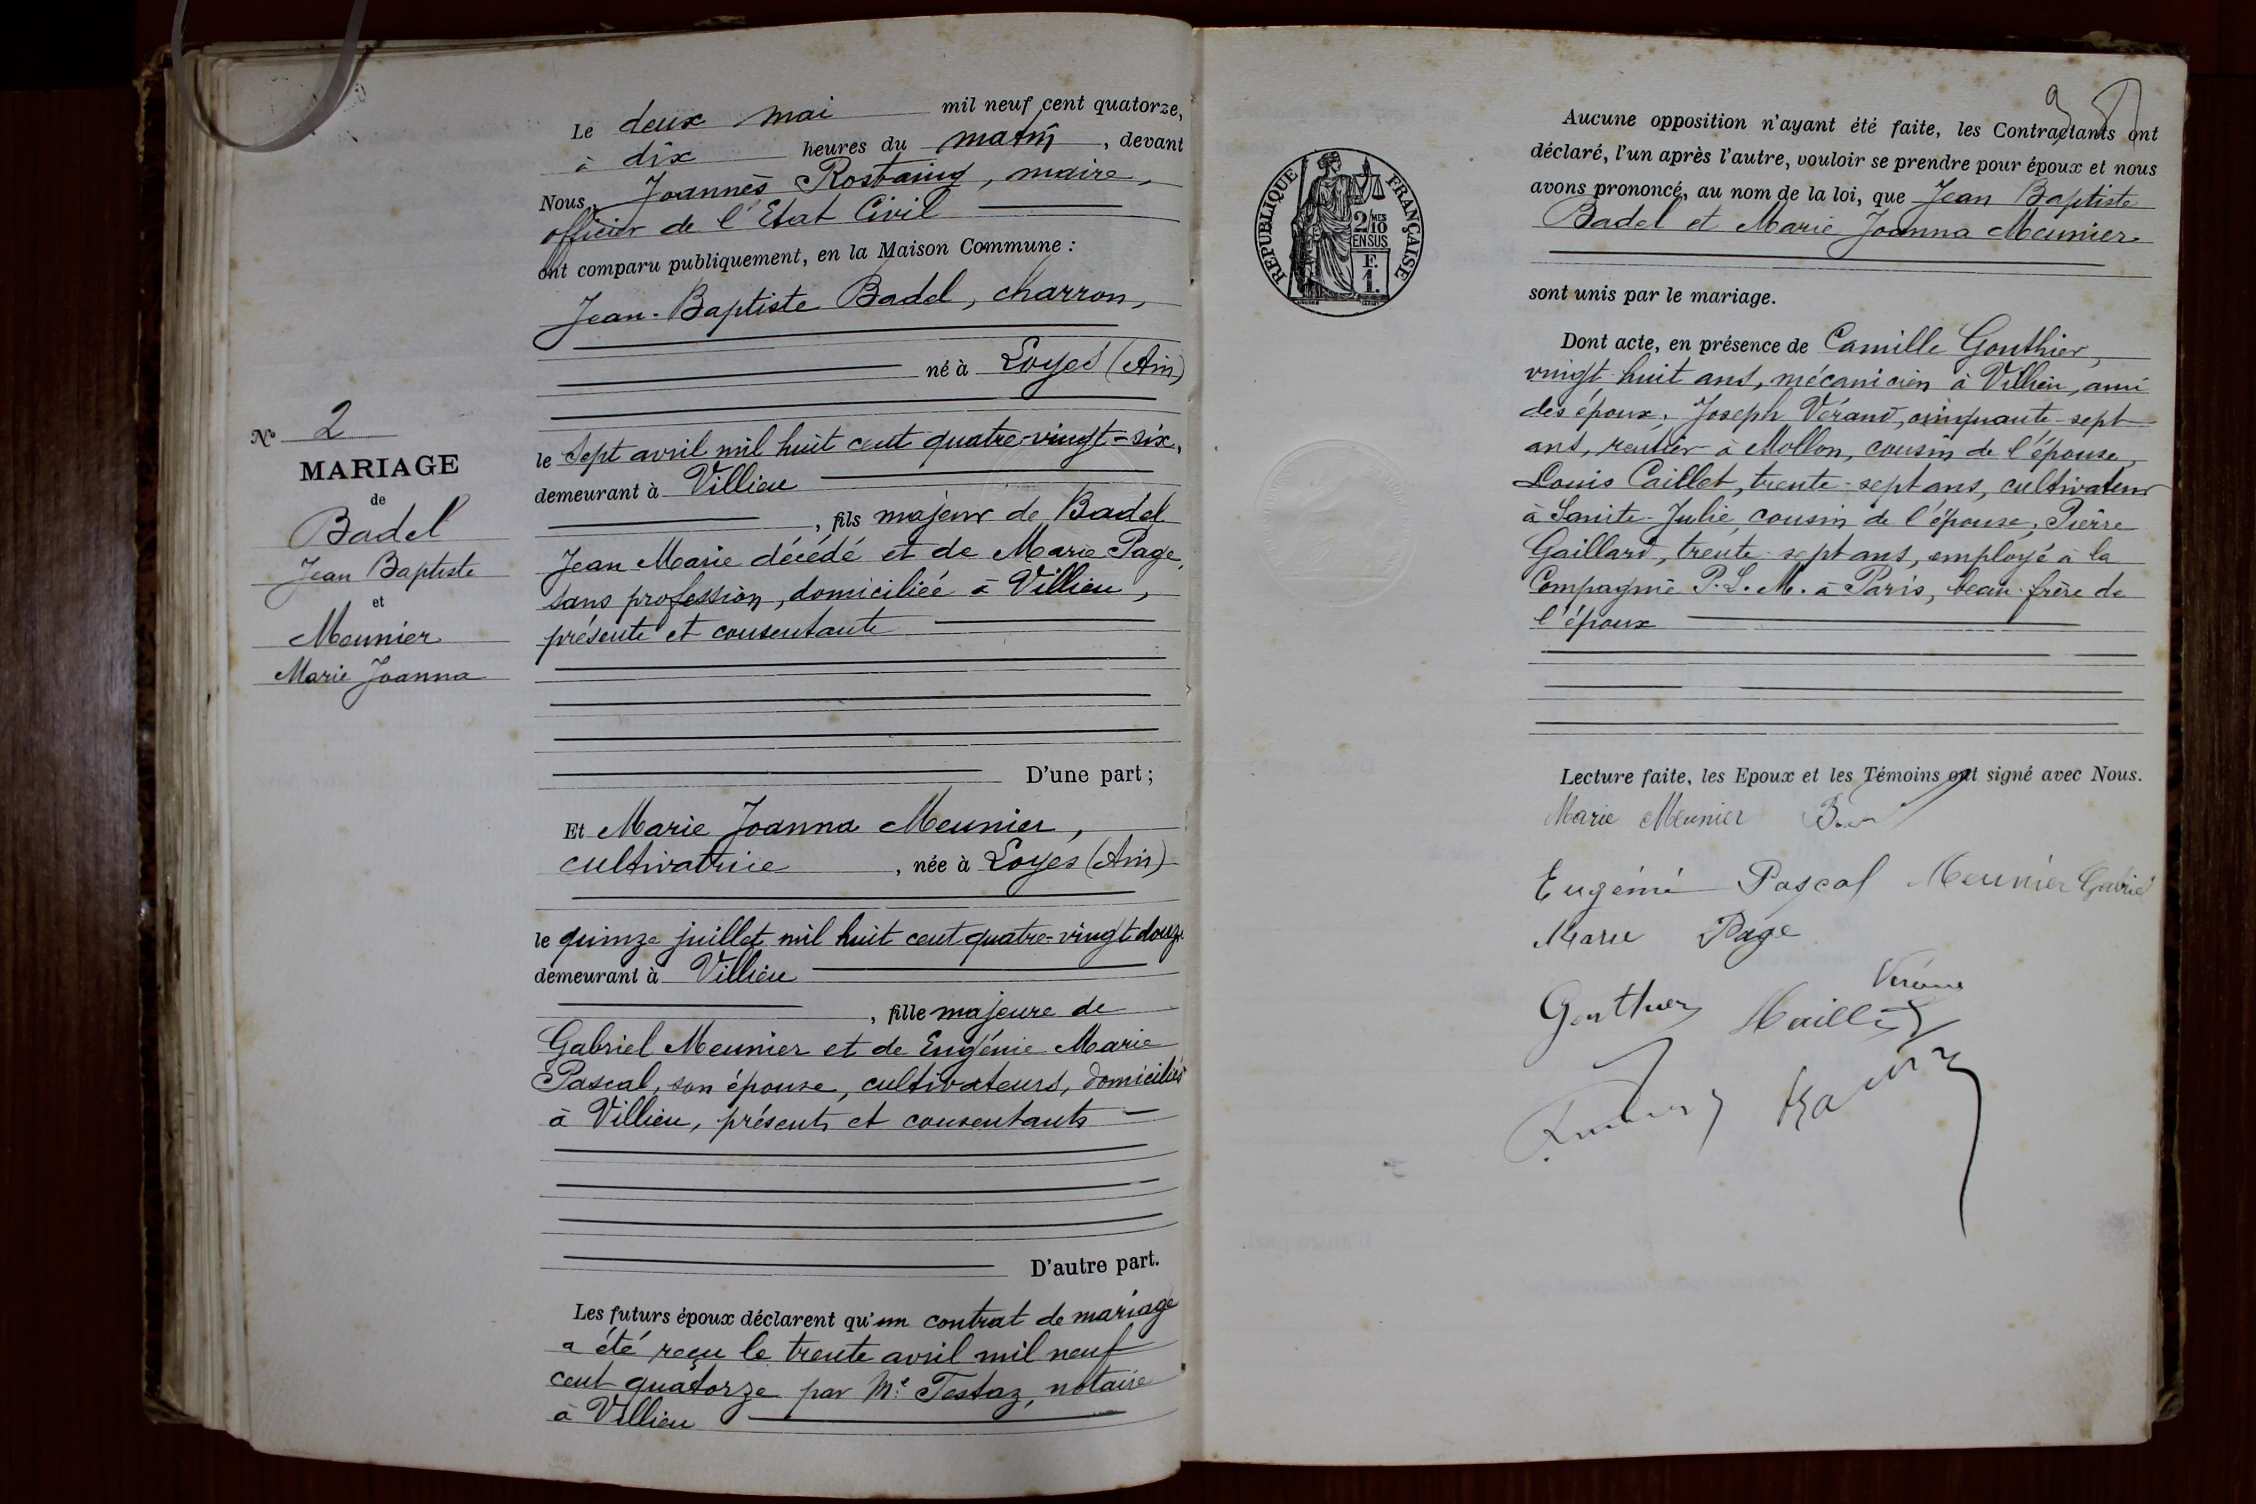 Le deux mai mil neuf cent quatorze,
à dix heures du matin, devant
Nous, Joannès Rostaing, maire,
officier de l'Etat Civil
ont comparu publiquement, en la Maison Commune :
Jean-Baptiste Badel, charron,
né à Loyes (Ain)
le sept avril mil huit cent quatre-vingt-six,
demeurant à Villieu
, fils majeur de Badel
Jean Marie décédé et de Marie Page,
sans profession, domiciliée à Villieu,
présente et consentante
D'une part ;
Et Marie Joanna Meunier,
cultivatrice, née à Loyes (Ain)
le quinze juillet mil huit cent quatre-vingt douze
demeurant à Villieu
, fille majeure de
Gabriel Meunier et de Eugénie Marie
Pascal, son épouse, cultivateurs, domiciliés
à Villieu, présents et consentants
D'autre part.
Les futurs époux déclarent qu'un contrat de mariage
a été reçu le trente avril mil neuf
cent quatorze par Me Testaz, notaire
à Villieu
No 2
MARIAGE
de
Badel
Jean Baptiste
et
Meunier
Marie Joanna
RÉPUBLIQUE FRANÇAISE
2/10 MES
EN SUS
F.
1.
Aucune opposition n'ayant été faite, les Contractants ont
déclaré, l'un après l'autre, vouloir se prendre pour époux et nous
avons prononcé, au nom de la loi, que Jean Baptiste
Badel et Marie Joanna Meunier
sont unis par le mariage.
Dont acte, en présence de Camille Gonthier,
vingt-huit ans, mécanicien à Villieu, ami
des époux, Joseph Vérand, cinquante-sept
ans, rentier à Mollon, cousin de l'épouse,
Louis Caillet, trente-sept ans, cultivateur
à Sainte-Julie, cousin de l'épouse, Pierre
Gaillard, trente-sept ans, employé à la
Compagnie P.L.M. à Paris, beau-frère de
l'époux
Lecture faite, les Epoux et les Témoins ont signé avec Nous.
Marie Meunier
Eugénie Pascal Meunier Gabriel
Marie Page
Gonthier